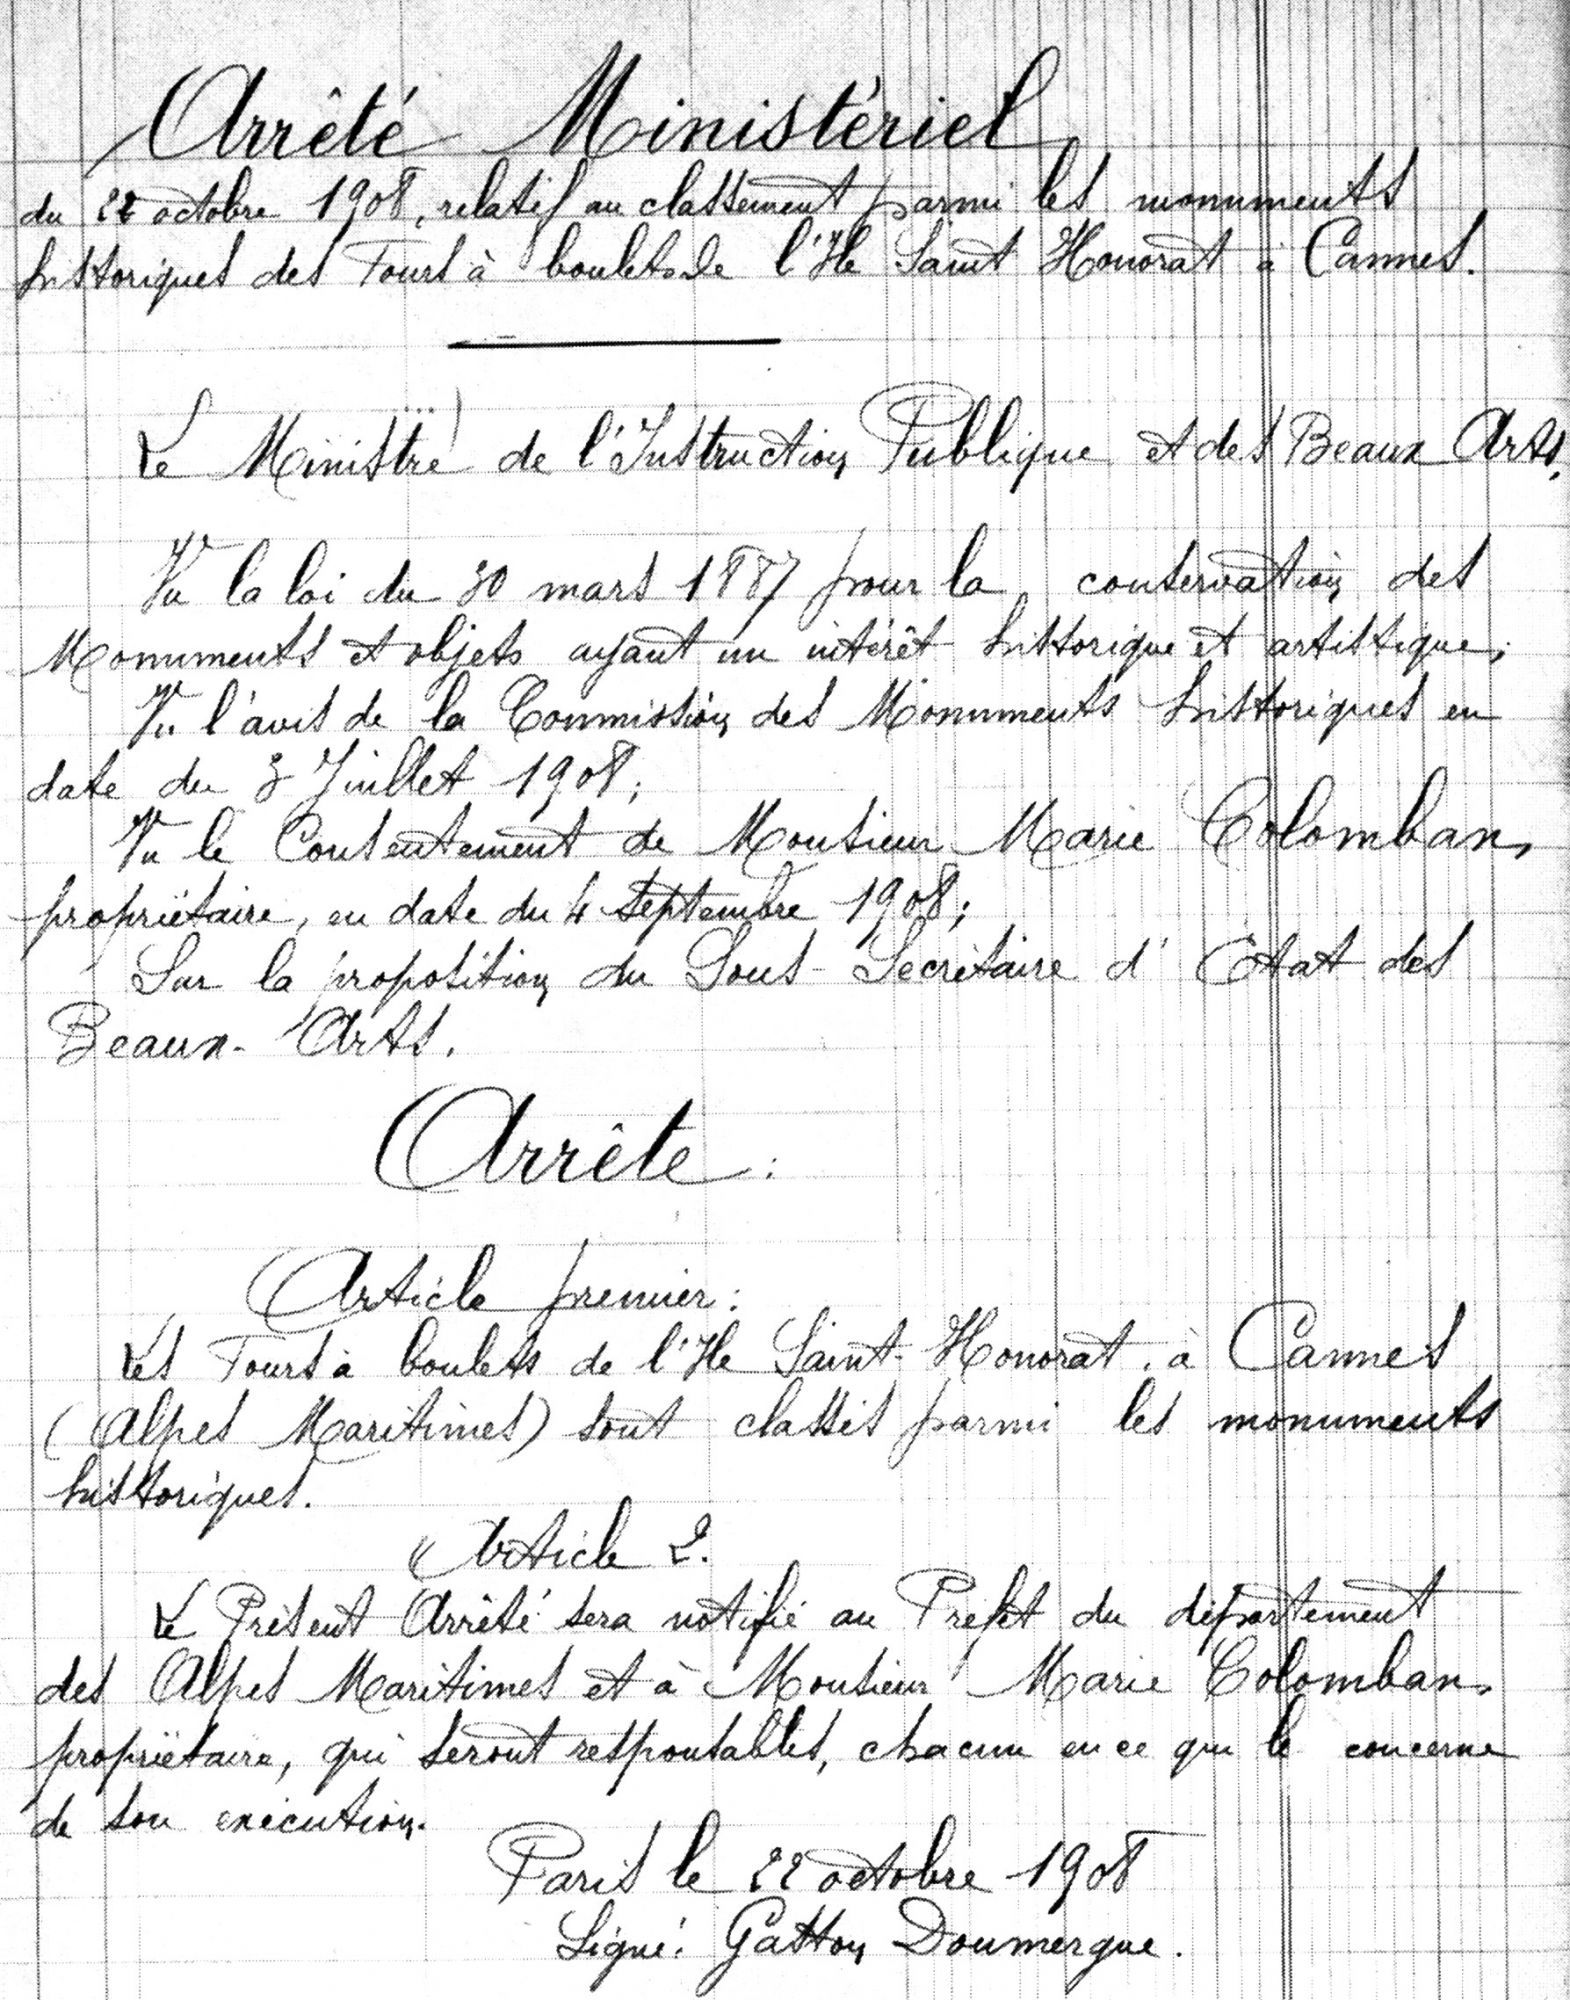 Arrêté Ministériel
du 22 octobre 1908, relatif au classement parmi les monuments
historiques des Tours à boulets de l'Ile Saint Honorat à Cannes.
Le Ministre de l'Instruction Publique et des Beaux Arts,
Vu la loi du 30 mars 1887 pour la conservation des
Monuments et objets ayant un intérêt historique et artistique;
Vu l'avis de la Commission des Monuments historiques en
date du 3 Juillet 1908;
Vu le Consentement de Monsieur Marie Colomban,
propriétaire, en date du 4 Septembre 1908;
Sur la proposition du Sous-Secrétaire d'Etat des
Beaux-Arts.
Arrête:
Article premier:
Les Tours à boulets de l'Ile Saint-Honorat, à Cannes
(Alpes Maritimes) sont classés parmi les monuments
historiques.
Article 2.
Le Présent Arrêté sera notifié au Préfet du département
des Alpes Maritimes et à Monsieur Marie Colomban,
propriétaire, qui seront responsables, chacun en ce qui le concerne
de son exécution.
Paris le 22 octobre 1908
Signé: Gaston Doumergue.